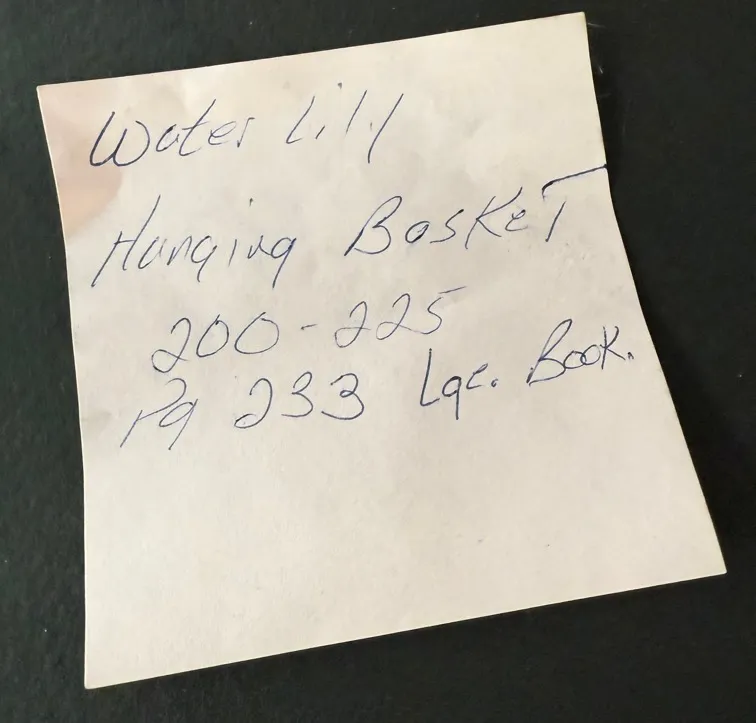 Water Lily
Hanging Basket
200-225
Pg 233 Lge. Book.